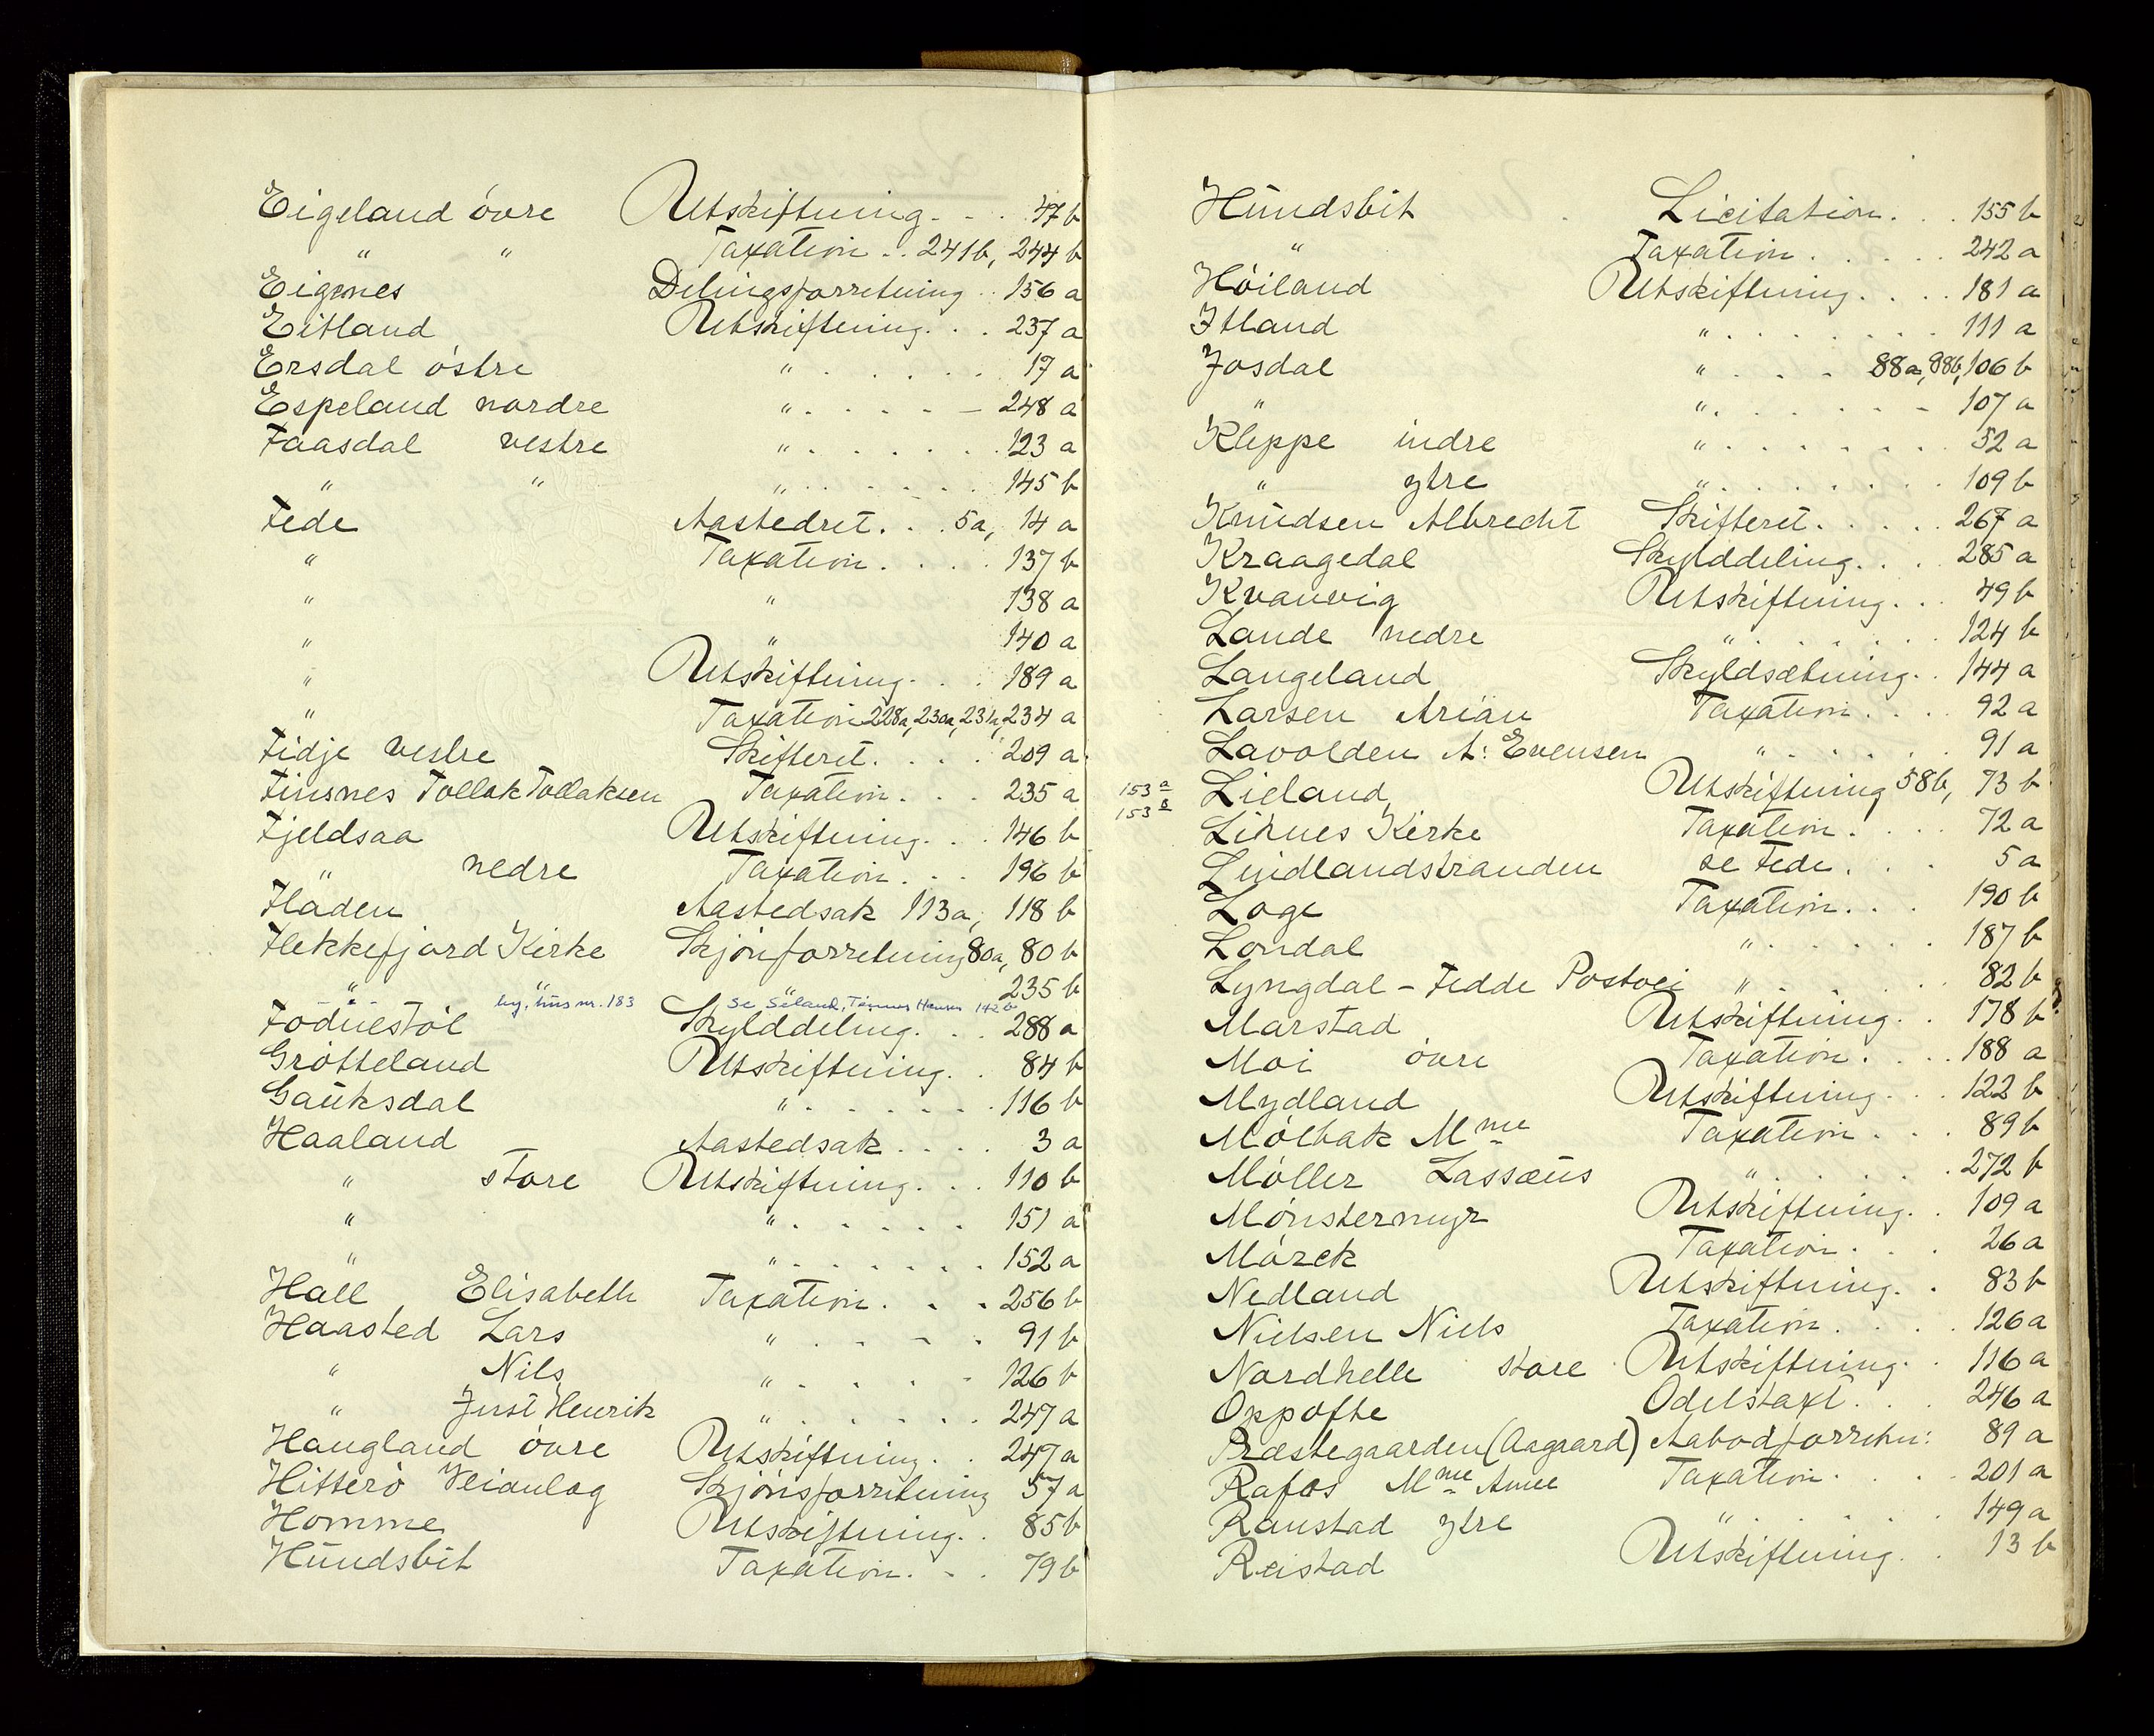 Eigeland övre Utskiftning. . . 47 b
" " Taxation . . 241 b, 244 b
Eigenes Delingsforretning . . 156 a
Eitland Utskiftning. . . 237 a
Ersdal östre " . . . . . 17 a
Espeland nordre " . . . . . 248 a
Faasdal vestre " . . . . . . 123 a
" " " . . . . . . 145 b
Fede Aastedret. . . 5a, 14 a
" Taxation . . . . 137 b
" " 138 a
" " 140 a
" Utskiftning. . . 189 a
" Taxation 228a, 230a, 231a, 234 a
Fidje vestre Skifteret. . . . 209 a
Finsnes Tollak Tollaksen Taxation . . . 235 a
Fjeldsaa Utskiftning. . . 146 b
" nedre Taxation . . . 196 b
Fläden Aastedsak 113a, 118 b
Flekkefjord Kirke Skjönforretning 80a, 80 b
" " " 235 b
" - " - byg. hus nr. 183 Se Seland, Tönnes Hansen 142 b
Födnestöl Skylddeling. . . 288 a
Grötteland Utskiftning. . 84 b
Gauksdal " . . . . . . 116 b
Haaland Aastedsak . . . . 3 a
" store Utskiftning. . . 110 b
" " . . . . . 151 a
" " . . . . . . 152 a
Hall Elisabeth Taxation . . . 256 b
Haasted Lars " . . . . 91 b
" Nils " . . . . 126 b
" Just Henrik " . . . . . 247 a
Haugland övre Utskiftning . . 247 a
Hitterö Veianlæg Skjönsforretning 57 a
Homme Utskiftning. . 85 b
Hundsbit Taxation . . . 79 b
Hundsbit Licitation . . . 155 b
" Taxation . . . . . 242 a
Höiland Utskiftning. . . . 181 a
Itland " . . . . . . . 111 a
Josdal " . . . . 88a, 98b, 106 b
" " . . . . . . 107 a
Kleppe indre " . . . . . . . 52 a
" ytre " . . . . . . . 109 b
Knudsen Albrecht Skifteret. . . . . 267 a
Kraagedal Skylddeling. . . . 285 a
Kvanvig Utskiftning. . . 49 b
Lande nedre " . . . . . . 124 b
Langeland Skyldsætning. . 144 a
Larsen Arian Taxation . . . . 92 a
Lavolden A: Evensen " . . . . . . 91 a
153 a Lieland Utskiftning 58b, 73 b
153 a
Liknes Kirke Taxation . . . . 72 a
Lindlandstranden se Fede . . . 5 a
Loge Taxation . . . 190 b
Londal " . . . . . . 187 b
Lyngdal - Fedde Postvei " . . . . . 82 b
Marstad Utskiftning. . . 178 b
Moi övre Taxation . . . . 188 a
Mydland Utskiftning . . . 122 b
Mölbak Mme Taxation . . . . 89 b
Möller Lassæus " . . . . . . 272 b
Mönstermyr Utskiftning. . . 109 a
Mörek Taxation . . . . 26 a
Nedland Utskiftning. . . 83 b
Nielsen Niels Taxation . . . . 126 a
Nordhelle store Utskiftning. . . 116 a
Oppofte Odelstaxt . . . 246 a
Præstegaarden (Aagaard) Aabodforretn: 89 a
Rafos Mme Anne Taxation . . . . 201 a
Raustad ytre " . . . . . . 149 a
Reistad Utskiftning. . . 13 b